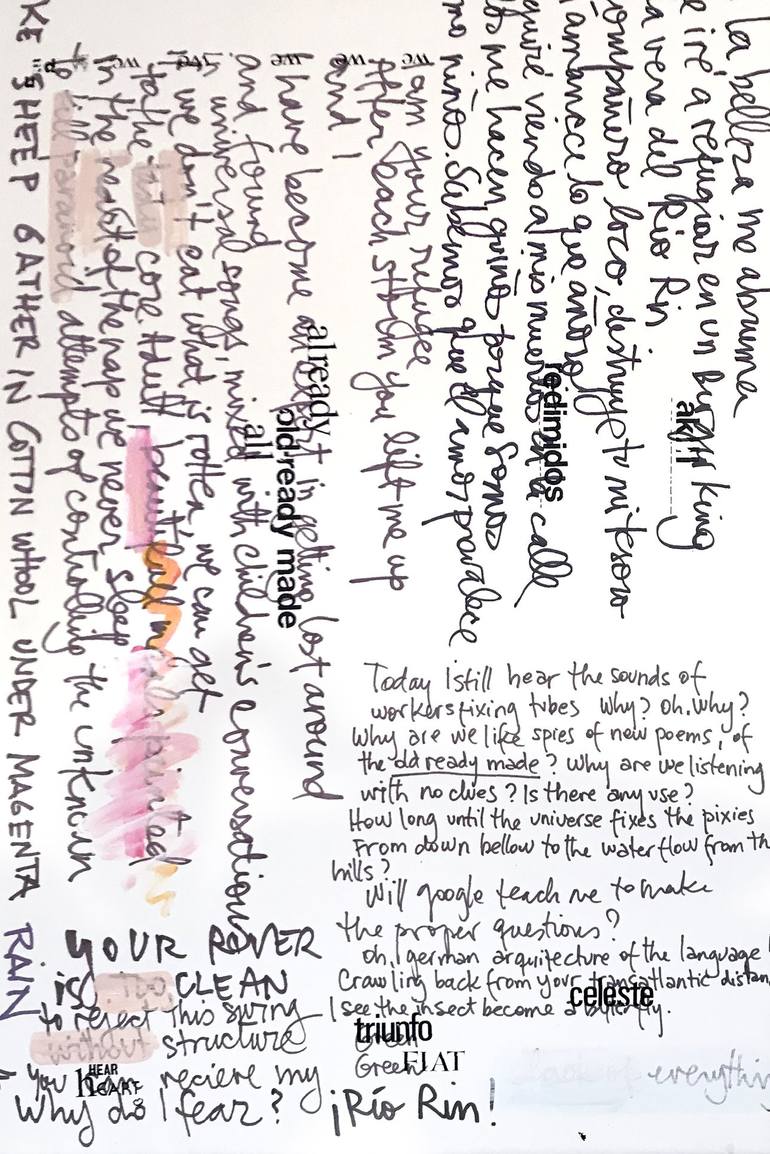 la belleza me abruma
e iré a refugiar en un burger king
a vera del Río Rin
ompañero loco, destruye tu mi tesoro
amanece lo que añoro
guiré viendo a mis muertos en la calle
os me hacen guiño porque somos
mo niños. Sabemos que el amor prevalece
akí!
redimidos
we we we we the
am your refugee
after each storm you lift me up
and I
have become an expert in getting lost around
and found
universal songs, mixed with children's conversations
if we don't eat what is rotten, we can get
to the core. Adult beautiful minds painted
in the heart of the nap we never sleep
to kill paranoid attempts of controlling the unknown
KE SHEEP GATHER IN COTTON WHOOL UNDER MAGENTA RAIN
already
old-ready made
all
Today I still hear the sounds of
workers fixing tubes Why? Oh, why?
Why are we like spies of new poems, of
the old ready made? Why are we listening
with no clues? Is there any use?
How long until the universe fixes the pixies
From down bellow to the water flow from th
hills?
Will google teach me to make
the proper questions?
Oh, german arquitecture of the language
Crawling back from your transatlantic distan
I see the insect become a butterfly.
celeste
triunfo
Green
Green FIAT
¡Río Rin!
everythin
YOUR POWER
is too CLEAN
to reject this swing
without structure
HEAR
you heart recieve my
Why do I fear?